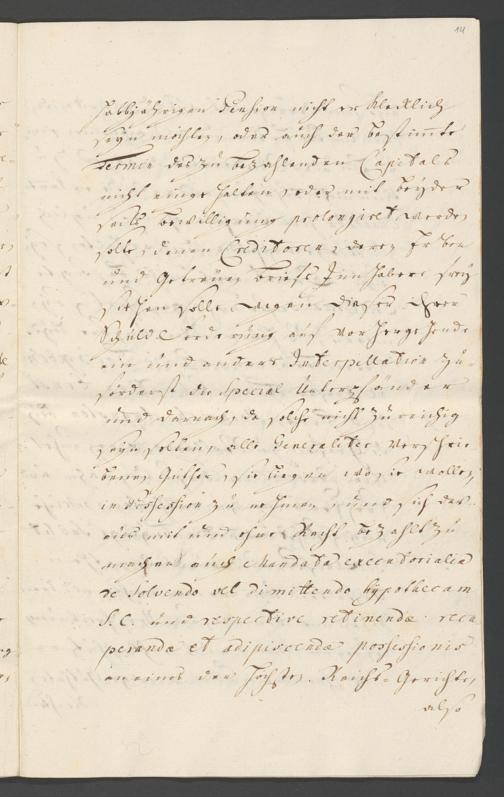 14
halbjährigen Pension nicht erklecklich
seyn möchte, oder auch der bestimte
Termin des zu bezahlenden Capitals
nicht eingehalten, oder mit beyder
seits bewilligung prolongiret werden
solte, denen Creditoren, deren Erben
und Getreuen briefs Innhabere frey
stehen solle wegen dieser ihrer
Schuld Forderung auf vorhergehende
ein und andere Interpellation zu-
förderst die Special Unterpfänder
und darnach, da solche nicht zureichig
seyn solten, alle Generaliter verschrie
bene Güther, sie liegen wo sie wollen,
in Possession zu nehmen, und sich dar
aus mit und ohne Recht bezahlt zu
machen auch Mandata executorialia
de solvendo vel dimittendo hypothecam
S. C. und respective retinendæ recu
perandæ et adipiscendæ possessionis
an eines der höchsten Reichs-Gerichte,
also